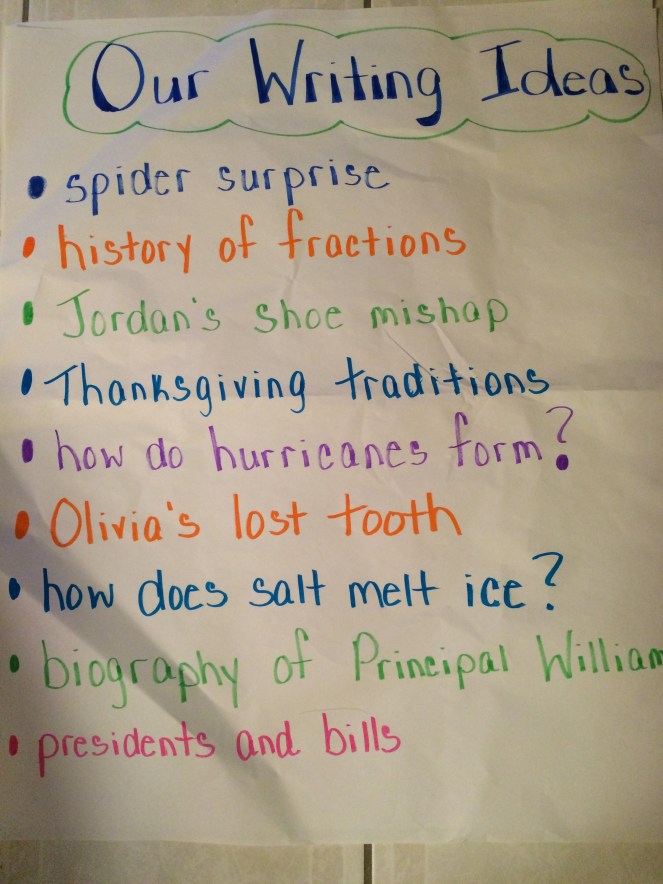 Our Writing Ideas
• spider surprise
• history of fractions
• Jordan's shoe mishap
• Thanksgiving traditions
• how do hurricanes form?
• Olivia's lost tooth
• how does salt melt ice?
• biography of Principal William
• presidents and bills